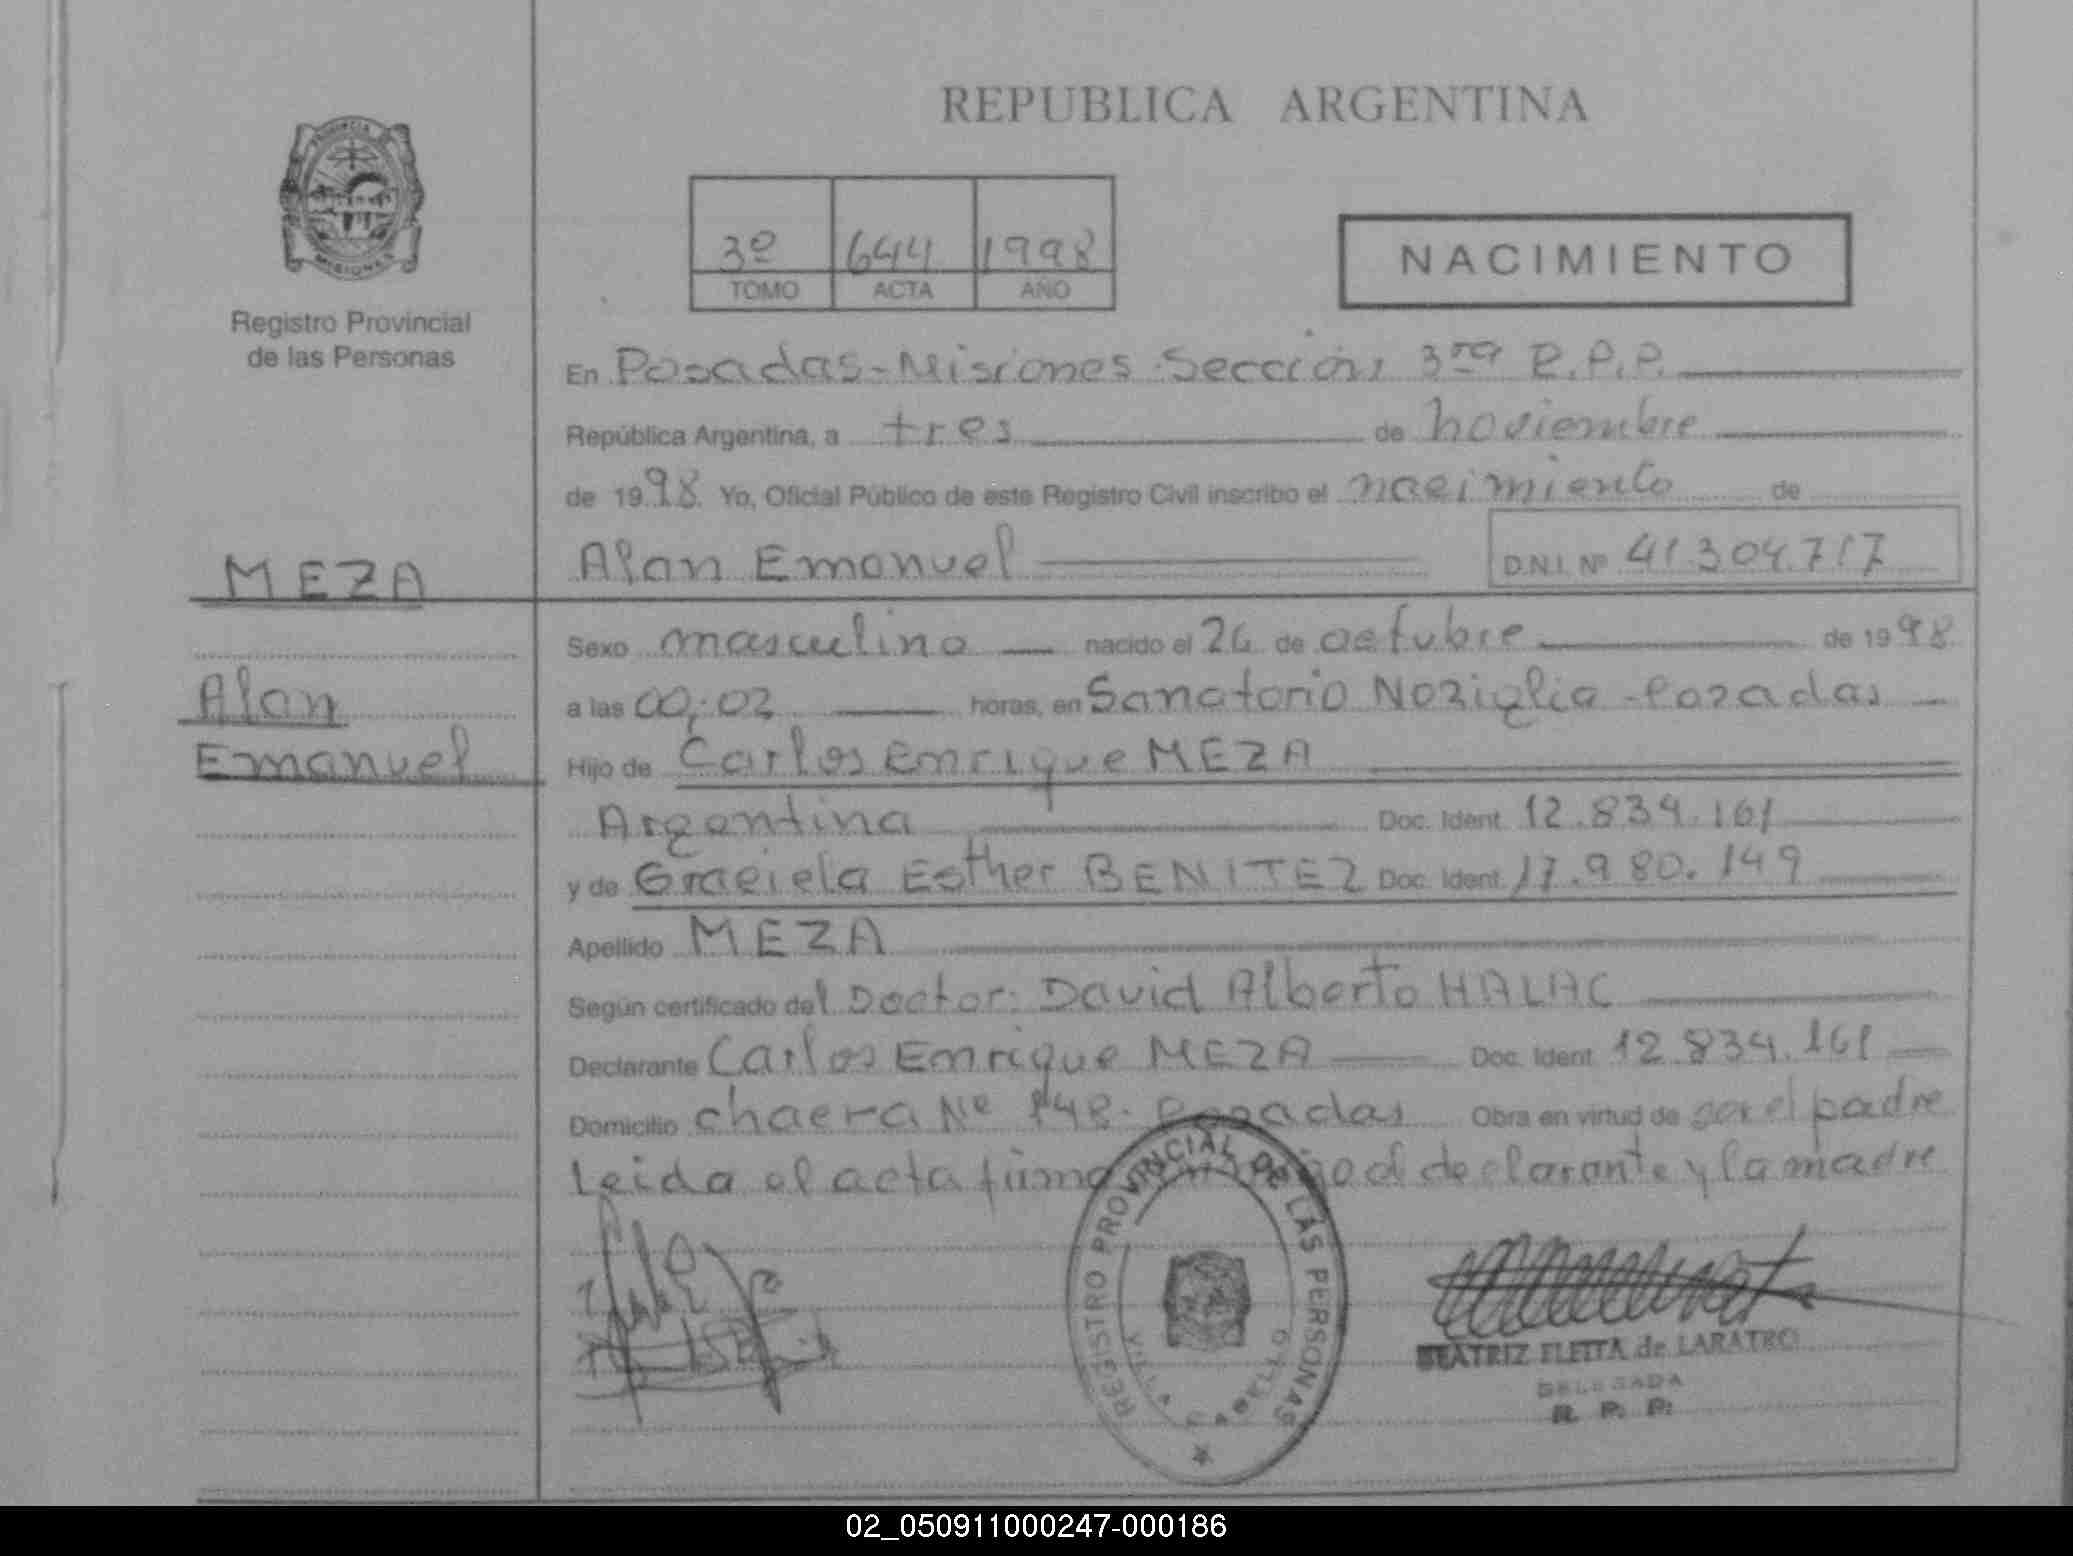 REPUBLICA ARGENTINA
PROVINCIA
MISIONES
Registro Provincial
de las Personas
3º 644 1998
TOMO ACTA AÑO
NACIMIENTO
En Posadas-Misiones-Sección 3ra R.P.P.
República Argentina, a tres de noviembre
de 1998 Yo, Oficial Público de este Registro Civil inscribo el nacimiento de
MEZA
Alan Emanuel D.N.I. Nº 41.304.717
Sexo masculino nacido el 26 de octubre de 1998
Alan
a las 00:02 horas, en Sanatorio Noziglia-Posadas
Emanuel
Hijo de Carlos Enrique MEZA
Argentina Doc. Ident. 12.834.161
y de Graciela Esther BENITEZ Doc. Ident. 17.980.149
Apellido MEZA
Según certificado del Doctor: David Alberto HALAC
Declarante Carlos Enrique MEZA Doc. Ident. 12.834.161
Domicilio chacra Nº 148. Posadas Obra en virtud de ser el padre
Leida el acta firma el declarante y la madre
REGISTRO PROVINCIAL DE LAS PERSONAS
VILLA CABELLO
BEATRIZ FLEITA de LARATRO
DELEGADA
R. P. P.
02_050911000247-000186